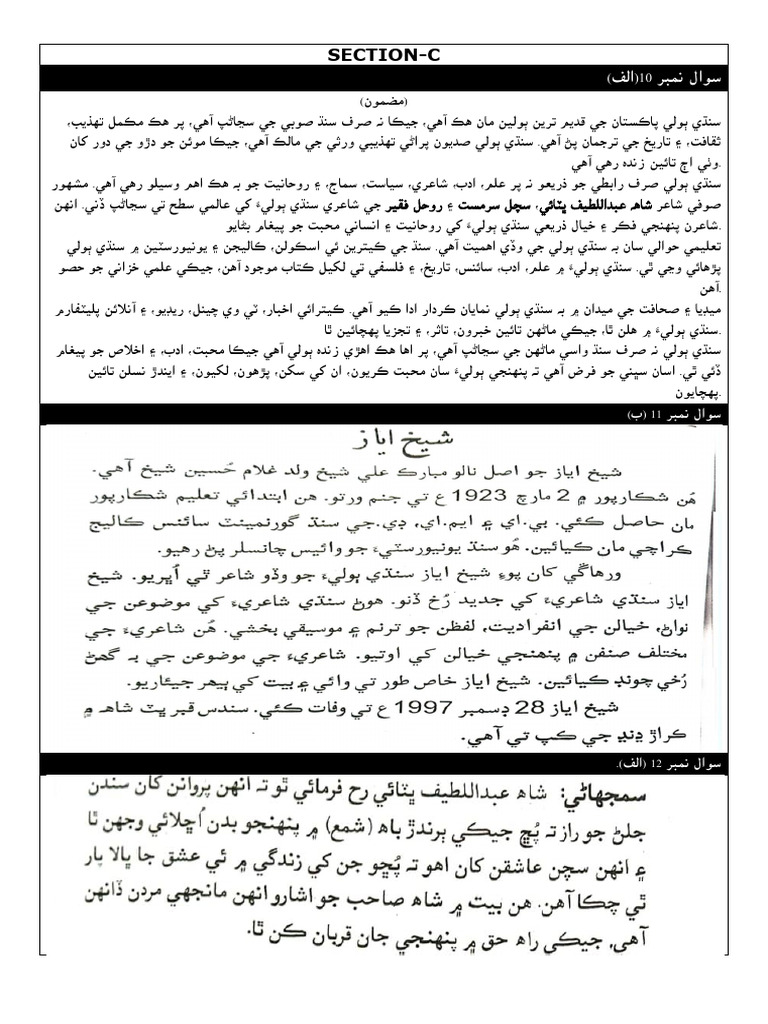 SECTION-C
سوال نمبر 10(الف)
(مضمون)
سنڌي ٻولي پاڪستان جي قديم ترين ٻولين مان هڪ آهي، جيڪا نہ صرف سنڌ صوبي جي سڃاڻپ آهي، پر هڪ مڪمل تهذيب،
ثقافت، ۽ تاريخ جي ترجمان پڻ آهي. سنڌي ٻولي صديون پراڻي تهذيبي ورثي جي مالڪ آهي، جيڪا موئن جو دڙو جي دور کان
وٺي اڄ تائين زنده رهي آهي.
سنڌي ٻولي صرف رابطي جو ذريعو نہ پر علم، ادب، شاعري، سياست، سماج، ۽ روحانيت جو بہ هڪ اهم وسيلو رهي آهي. مشهور
صوفي شاعر شاھ عبداللطيف ڀٽائي، سچل سرمست ۽ روحل فقير جي شاعري سنڌي ٻوليءَ کي عالمي سطح تي سڃاڻپ ڏني. انهن
شاعرن پنهنجي فڪر ۽ خيال ذريعي سنڌي ٻوليءَ کي روحانيت ۽ انساني محبت جو پيغام بڻايو.
تعليمي حوالي سان بہ سنڌي ٻولي جي وڏي اهميت آهي. سنڌ جي ڪيترين ئي اسڪولن، ڪاليجن ۽ يونيورسٽين ۾ سنڌي ٻولي
پڙهائي وڃي ٿي. سنڌي ٻوليءَ ۾ علم، ادب، سائنس، تاريخ، ۽ فلسفي تي لکيل ڪتاب موجود آهن، جيڪي علمي خزاني جو حصو
آهن.
ميڊيا ۽ صحافت جي ميدان ۾ بہ سنڌي ٻولي نمايان ڪردار ادا ڪيو آهي. ڪيترائي اخبار، ٽي وي چينل، ريڊيو، ۽ آنلائن پليٽفارم
سنڌي ٻوليءَ ۾ هلن ٿا، جيڪي ماڻهن تائين خبرون، تاثر، ۽ تجزيا پهچائين ٿا.
سنڌي ٻولي نہ صرف سنڌ واسي ماڻهن جي سڃاڻپ آهي، پر اها هڪ اهڙي زنده ٻولي آهي جيڪا محبت، ادب، ۽ اخلاص جو پيغام
ڏئي ٿي. اسان سڀني جو فرض آهي تہ پنهنجي ٻوليءَ سان محبت ڪريون، ان کي سکن، پڙهون، لکيون، ۽ ايندڙ نسلن تائين
پهچايون.
سوال نمبر 11 (ب)
شيخ اياز
شيخ اياز جو اصل نالو مبارڪ علي شيخ ولد غلام حُسين شيخ آهي.
هُن شڪارپور ۾ 2 مارچ 1923 ع تي جنم ورتو. هن ابتدائي تعليم شڪارپور
مان حاصل ڪئي. بي.اي ۽ ايم.اي، ڊي.جي سنڌ گورنمينٽ سائنس ڪاليج
ڪراچي مان ڪيائين. هُو سنڌ يونيورسٽيءَ جو وائيس چانسلر پڻ رهيو.
ورهاڱي کان پوءِ شيخ اياز سنڌي ٻوليءَ جو وڏو شاعر ٿي اُڀريو. شيخ
اياز سنڌي شاعريءَ کي جديد رُخ ڏنو. هوڻ سنڌي شاعريءَ کي موضوعن جي
نواڻ، خيالن جي انفراديت، لفظن جو ترنم ۽ موسيقي بخشي. هُن شاعريءَ جي
مختلف صنفن ۾ پنهنجي خيالن کي اوتيو. شاعريءَ جي موضوعن جي بہ گهڻ
رُخي چونڊ ڪيائين. شيخ اياز خاص طور تي وائي ۽ بيت کي ٻيهر جيئاريو.
شيخ اياز 28 ڊسمبر 1997 ع تي وفات ڪئي. سندس قبر ڀٽ شاھ ۾
ڪراڙ ڍنڍ جي ڪپ تي آهي.
سوال نمبر 12 (الف).
سمجهاڻي: شاھ عبداللطيف ڀٽائي رح فرمائي ٿو تہ انهن پروانن کان سندن
جلڻ جو راز تہ پُڇ جيڪي ٻرندڙ باھ (شمع) ۾ پنهنجو بدن اُڇلائي وجهن ٿا
۽ انهن سچن عاشقن کان اهو تہ پُڇو جن کي زندگي ۾ ئي عشق جا ڀالا پار
ٿي چڪا آهن. هن بيت ۾ شاھ صاحب جو اشارو انهن مانجهي مردن ڏانهن
آهي، جيڪي راھ حق ۾ پنهنجي جان قربان ڪن ٿا.